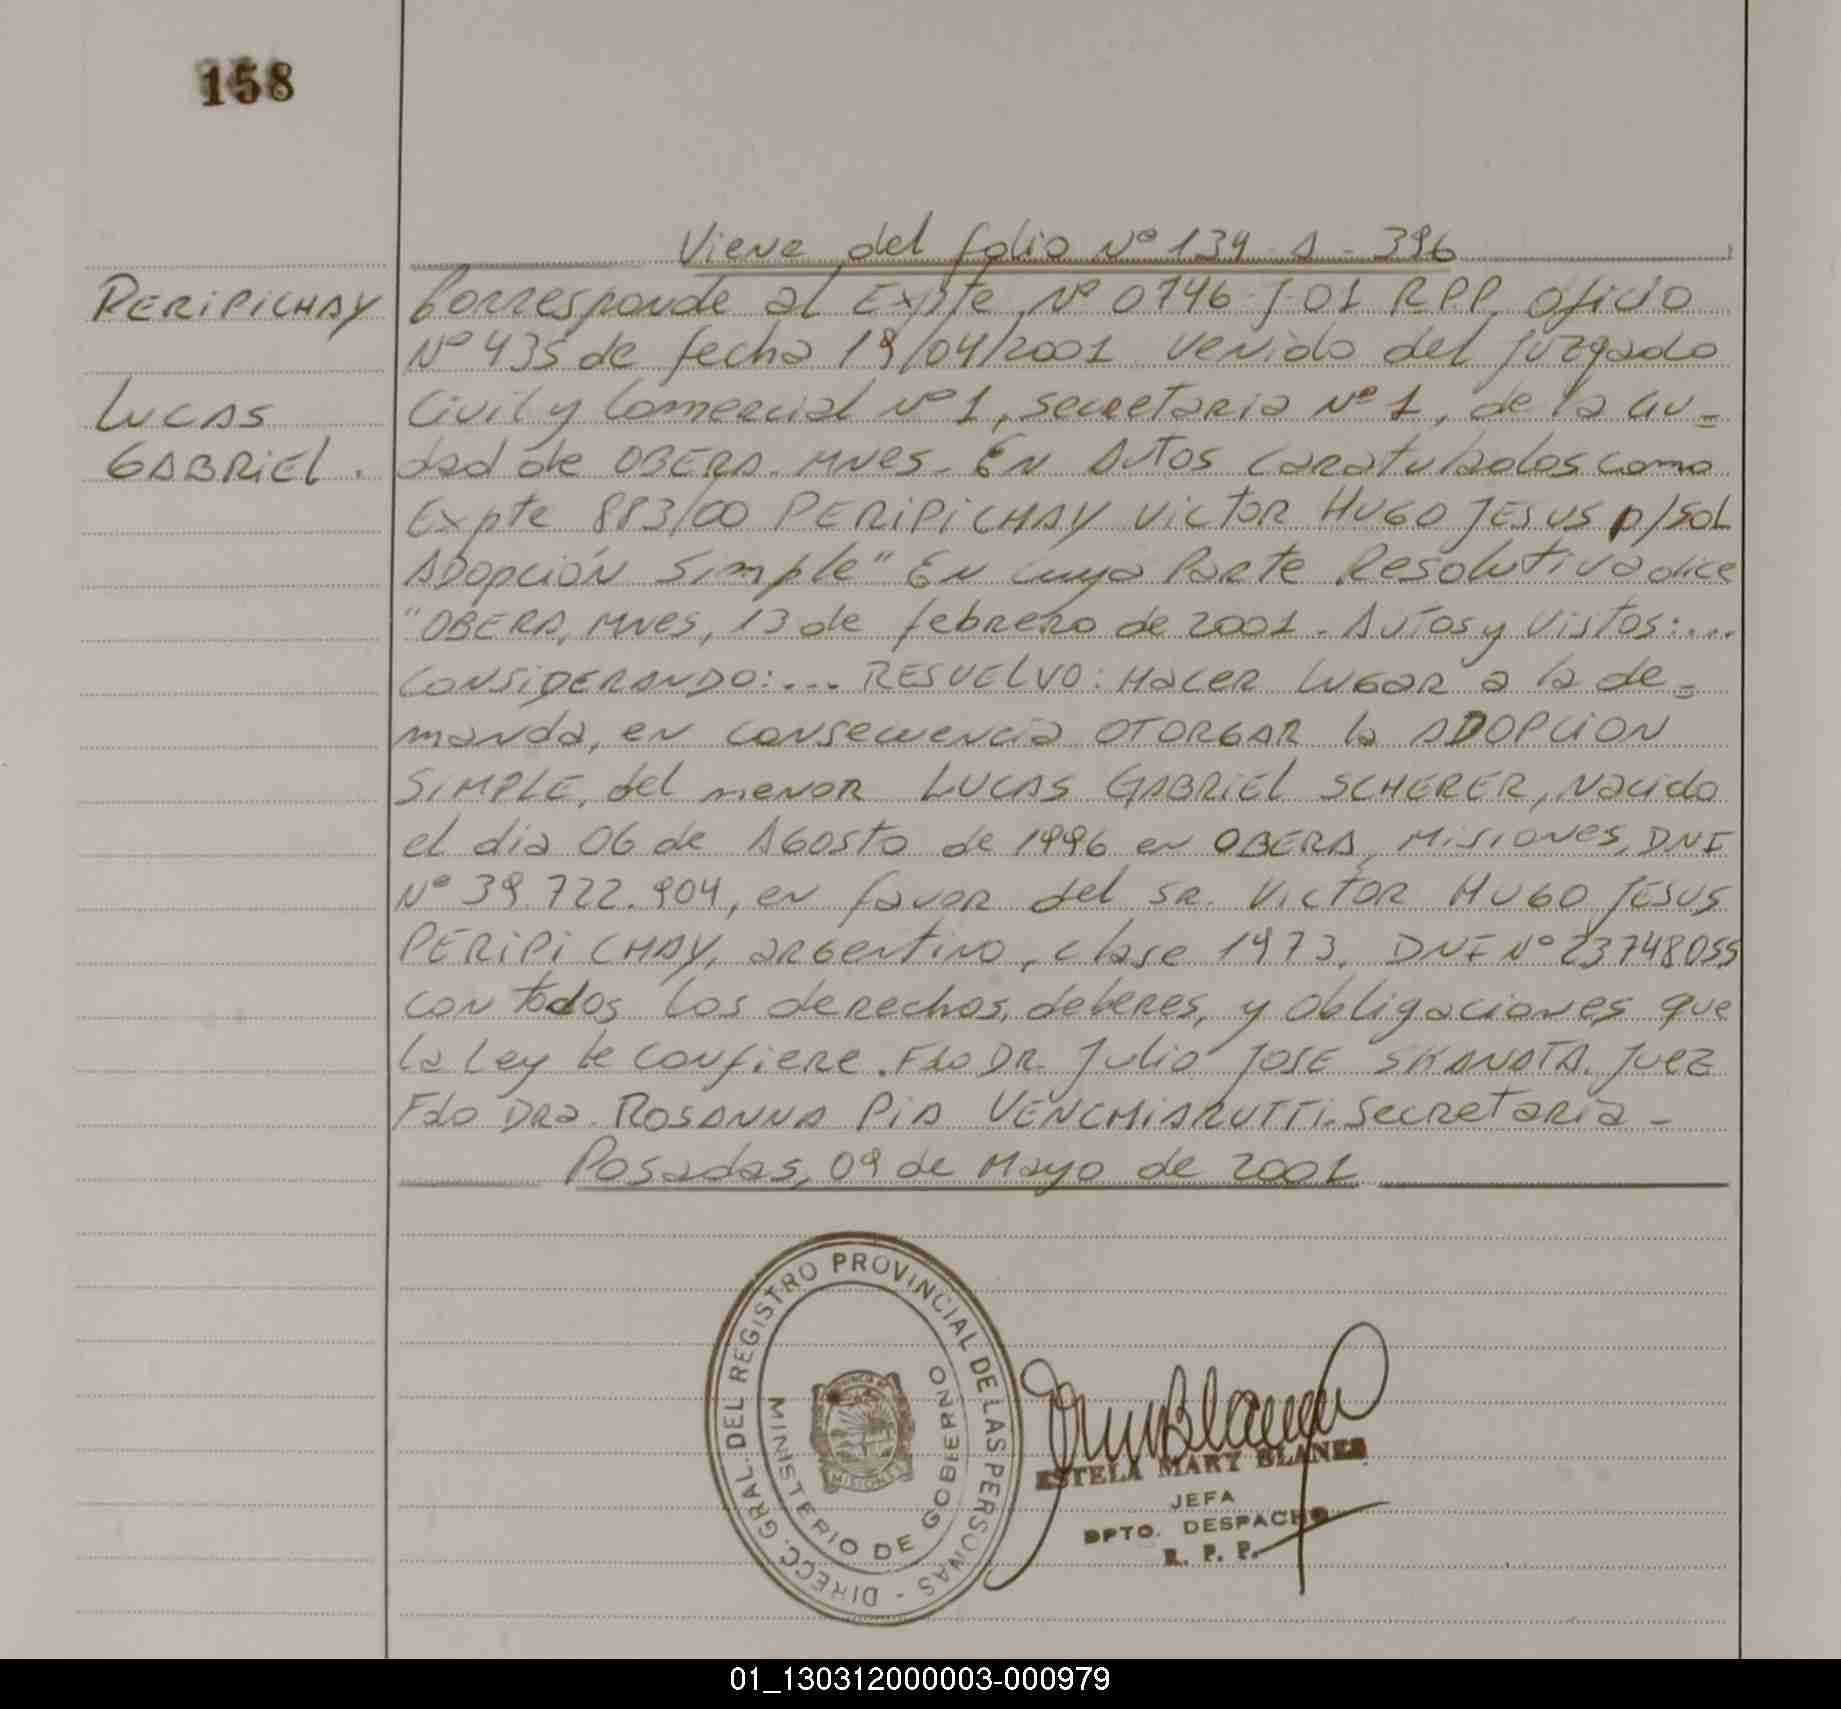 158
Viene del folio Nº 134 - A - 396
PERIPICHAY
Corresponde al Expte Nº 0746-J-01 RPP, oficio
Nº 435 de fecha 19/04/2001 venido del Juzgado
LUCAS
Civil y Comercial Nº 1, secretaria Nº 1, de la ciu-
GABRIEL.
dad de OBERA. MNES. En Autos caratulados como
Expte 883/00 PERIPICHAY VICTOR HUGO JESUS p/SOL
ADOPCIÓN Simple" En cuya Parte Resolutiva dice
"OBERA, MNES, 13 de febrero de 2001. Autos y Vistos:...
CONSIDERANDO:... RESUELVO: HACER LUGAR a la de-
manda, en consecuencia OTORGAR la ADOPCION
SIMPLE, del menor LUCAS GABRIEL SCHERER, Nacido
el dia 06 de AGOSTO de 1996 en OBERA, MISIONES, DNI
Nº 39.722.904, en favor del SR. VICTOR HUGO JESUS
PERIPICHAY, argentino, clase 1973, DNI Nº 23748055
con todos los derechos, deberes, y obligaciones que
la Ley le confiere. Fdo DR. Julio JOSE SKANATA. JUEZ
Fdo DRa. ROSANNA PIA VENCHIARUTTI. Secretaria -
Posadas, 09 de Mayo de 2001
DIRECC. GRAL. DEL REGISTRO PROVINCIAL DE LAS PERSONAS -
MINISTERIO DE GOBIERNO
MISIONES
ESTELA MARY BLANES
JEFA
DPTO. DESPACHO
R. P. P.
01_130312000003-000979